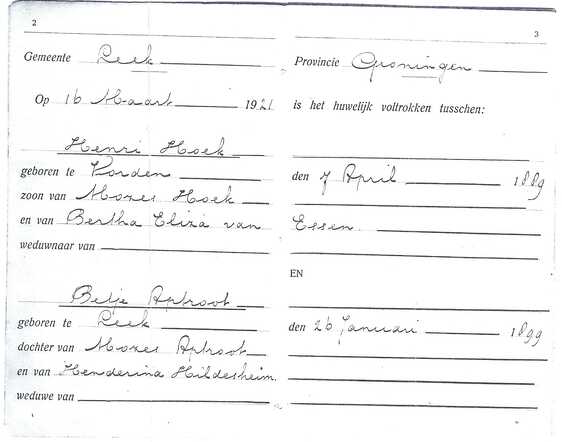 2
3
Gemeente Leek Provincie Groningen
Op 16 Maart 1921 is het huwelijk voltrokken tusschen:
Henri Hoek
geboren te Vorden den 7 April 1889
zoon van Mozes Hoek
en van Bertha Eliza van Essen
weduwnaar van
EN
Betje Aptroot
geboren te Leek den 26 Januari 1899
dochter van Mozes Aptroot
en van Henderina Hildesheim
weduwe van